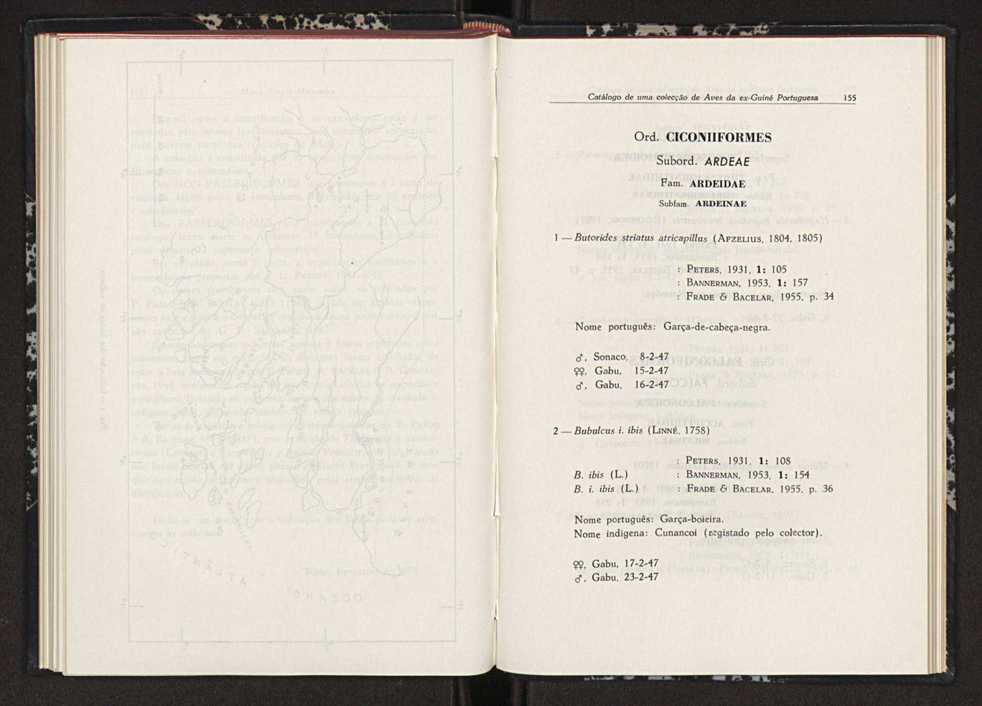 Catálogo de uma colecção de Aves da ex-Guiné Portuguesa 155
Ord. CICONIIFORMES
Subord. ARDEAE
Fam. ARDEIDAE
Subfam. ARDEINAE
1 — Butorides striatus atricapillus (AFZELIUS, 1804, 1805)
: PETERS, 1931, 1: 105
: BANNERMAN, 1953, 1: 157
: FRADE & BACELAR, 1955, p. 34
Nome português: Garça-de-cabeça-negra.
♂, Sonaco, 8-2-47
♀♀, Gabu, 15-2-47
♂, Gabu, 16-2-47
2 — Bubulcus i. ibis (LINNÉ, 1758)
: PETERS, 1931, 1: 108
B. ibis (L.) : BANNERMAN, 1953, 1: 154
B. i. ibis (L.) : FRADE & BACELAR, 1955, p. 36
Nome português: Garça-boieira.
Nome indígena: Cunancoi (registado pelo colector).
♀♀, Gabu, 17-2-47
♂, Gabu, 23-2-47